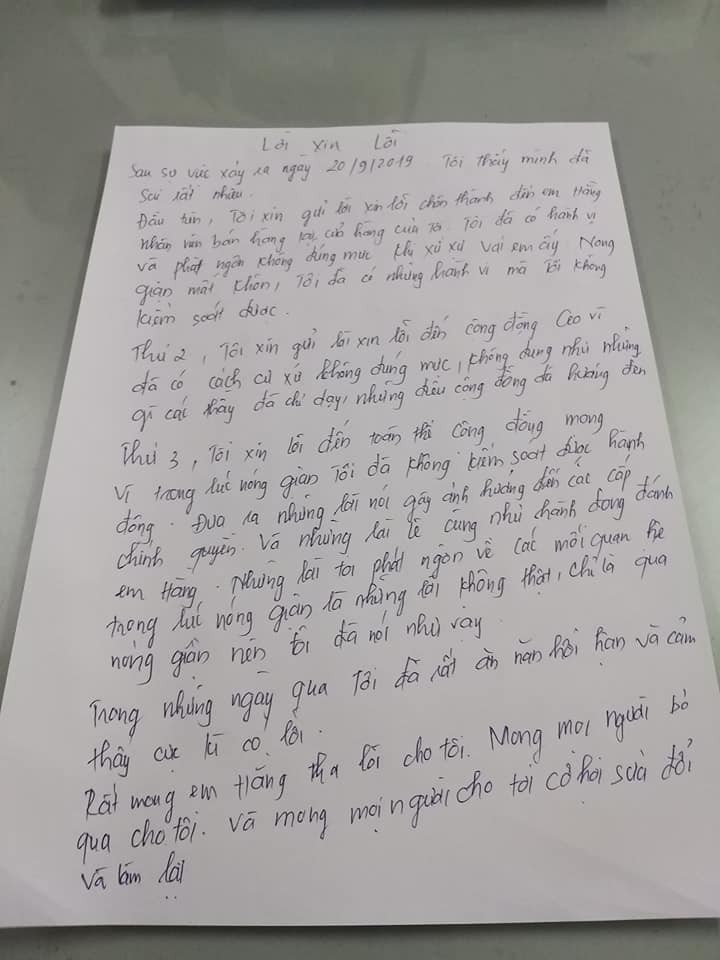 Lời xin Lỗi
Sau sự việc xảy ra ngày 20/9/2019 Tôi thấy mình đã
sai rất nhiều.
Đầu tiên, Tôi xin gửi lời xin lỗi chân thành đến em Hằng
nhân viên bán hàng tại cửa hàng của Tôi. Tôi đã có hành vi
và phát ngôn không đúng mực khi xử sự với em ấy Nong
giận mất khôn, Tôi đã có những hành vi mà Tôi không
kiểm soát được.
Thứ 2, Tôi xin gửi lời xin lỗi đến cộng đồng Ceo vì
đã có cách cư xử không đúng mực, không đúng như những
gì các thầy đã chỉ dạy, những điều cộng đồng đã hướng đến
Thứ 3, Tôi xin lỗi đến toàn thể cộng đồng mạng
Vì trong lúc nóng giận Tôi đã không kiểm soát được hành
động. Đưa ra những lời nói gây ảnh hưởng đến các cấp
chính quyền. Và những lời lẽ cũng như hành động đánh
em Hằng. Những lời tôi phát ngôn về các mối quan hệ
trong lúc nóng giận là những lời không thật, chỉ là quá
nóng giận nên tôi đã nói như vậy.
Trong những ngày qua Tôi đã rất ăn năn hối hận và cảm
thấy cực kì có lỗi.
Rất mong em Hằng tha lỗi cho tôi. Mong mọi người bỏ
qua cho tôi. Và mong mọi người cho tôi cơ hội sửa đổi
Và làm lại